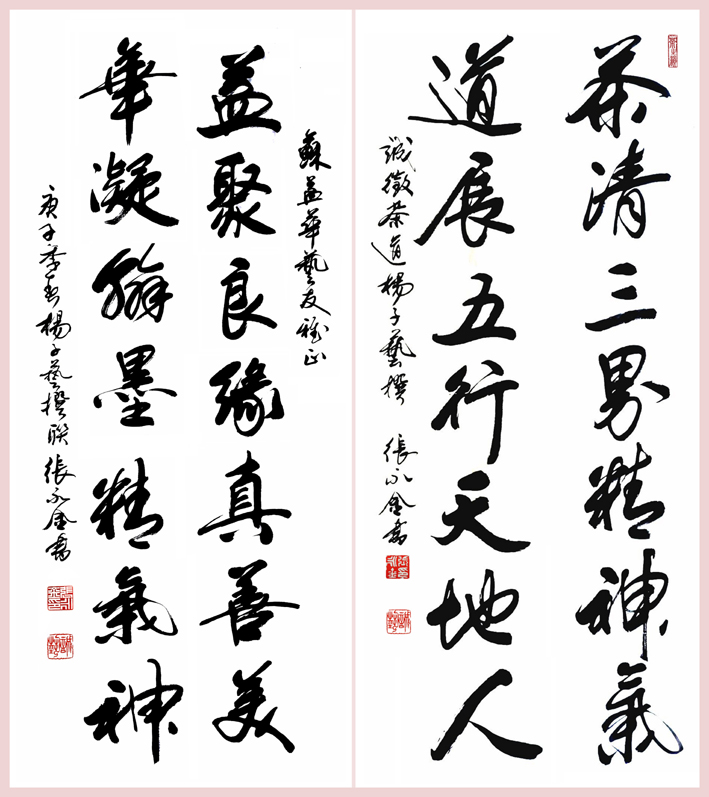 茶清三界精神氣
道展五行天地人
誠徵茶道楊子藝撰 張永金書
蘇益華藝友雅正
益聚良緣真善美
華凝翰墨精氣神
庚子季春楊子藝撰聯張永金書